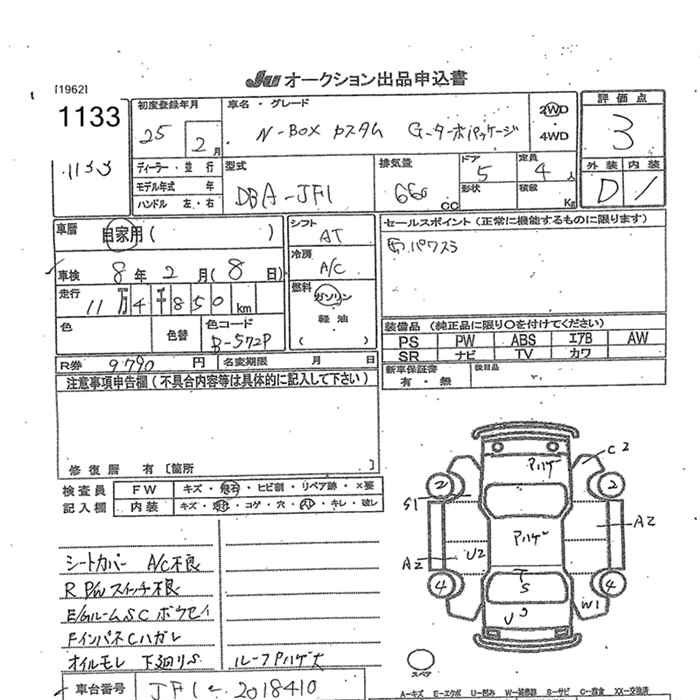 [1962]
JU オークション出品申込書
1133
1133
初度登録年月
25 2月
車名・グレード
N-BOX カスタム G-ターボパッケージ
2WD
4WD
評価点
3
ディーラー・並行
モデル年式 年
ハンドル 左・右
型式
DBA-JF1
排気量
660 CC
ドア 5
形状
定員 4人
積載 Kg
外装 内装
D /
車歴 自家用( )
シフト AT
セールスポイント(正常に機能するものに限ります)
両パワスラ
車検 8年2月(8日)
冷房 A/C
走行 11万4千850km
燃料 ガソリン
軽油
( )
色
色替
色コード
B-572P
装備品(純正品に限り〇を付けてください)
PS PW ABS エアB AW
SR ナビ TV カワ
R券 9790円
名変期限 月 日
新車保証書
有・無
後日品
注意事項申告欄(不具合内容等は具体的に記入して下さい)
修復歴 有[箇所 ]
検査員
記入欄
FW キズ・飛石・ヒビ割・リペア跡・×要
内装 キズ・コゲ・穴・キレ・破レ
シートカバー A/C不良
R P/Wスイッチ不良
E/GルームSCボウセイ
FインパネCハガレ
オイルモレ 下回りS
ルーフPハゲ大
車台番号 JF1-2018410
Pハゲ
C2
2
2
S1
A2
Pハゲ
A2
U2
4
4
S
W1
U
スペア
A-キズ E-エクボ U-凹み W-補修跡 S-サビ C-腐食 XX-交換済